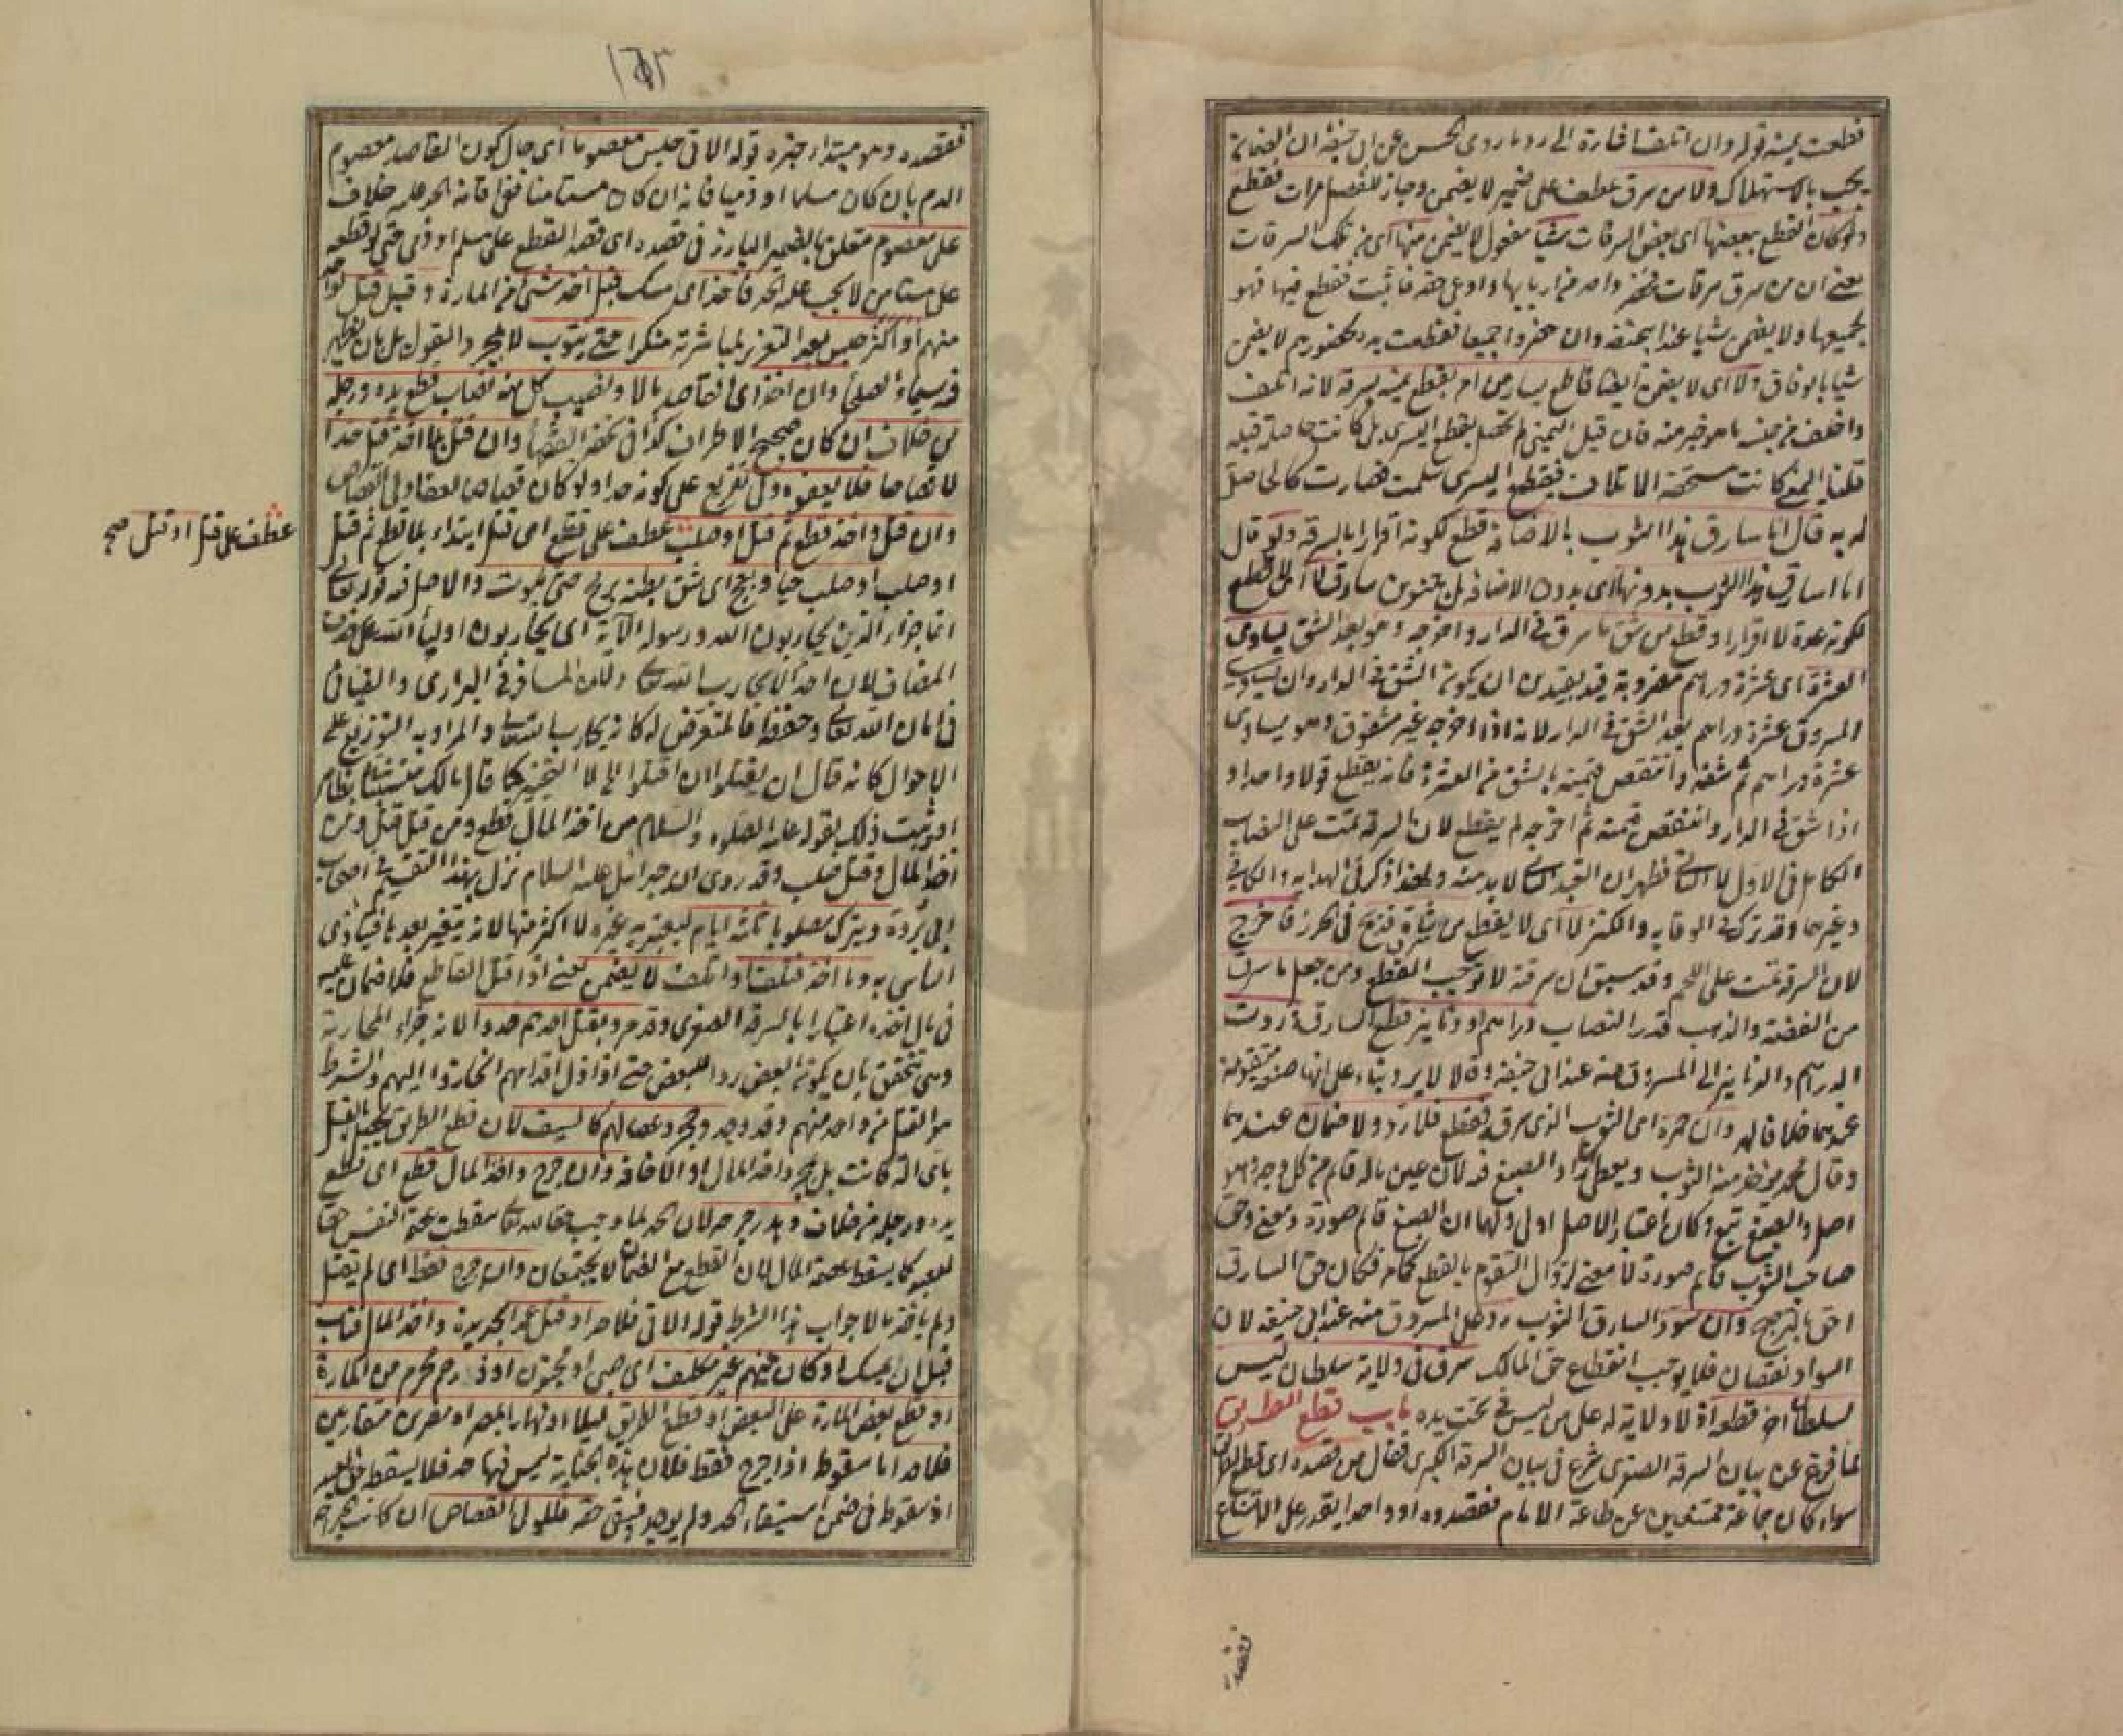 فقطعت يمينه قوله وان اتلفها اشارة الى رد ما روى الحسن عن ابى حنيفة ان الضمان
يجب بالاستهلاك ولا من سرق عطف على ضمير لا يضمن وجاز للفصل مرات فقطع
ولو كان القطع ببعضها اى بعض السرقات شيئا مفعول لا يضمن منها اى من تلك السرقات
يعنى ان من سرق سرقات فحضر واحد من اربابها وادعى حقه فاثبت فقطع فيها فهو
لجميعها ولا يضمن شيئا عند ابى حنيفة وان حضروا جميعا فقطعت يده بحضورهم لا يضمن
شيئا بالوفاق ولا اى لا يضمن ايضا قاطع يسار من امر بقطع يمينه بسرقة لانه اتلف
واخلف من جنسه ما هو خير منه فان قيل اليمنى لم تحصل بقطع اليسرى بل كانت حاصلة قبله
قلنا اليمنى كانت مستحقة الاتلاف فبقطع اليسرى سلمت فصارت كالحاصل
له به قال انا سارق هذا الثوب بالاضافة قطع لكونه اقرارا بالسرقة ولو قال
انا سارق هذا الثوب بدونها اى بدون الاضافة بل بتنوين سارق لا اى لا يقطع
لكونه عدة لا اقرارا وقطع من شق ما سرق فى الدار واخرجه وهو بعد الشق يساوى
العشرة اى عشرة دراهم مضروبة قيد بقيدين ان يكون الشق فى الدار وان يساوى
المسروق عشرة دراهم بعد الشق فى الدار لانه اذا اخرجه غير مشقوق وهو يساوى
عشرة دراهم ثم شقه وانتقص قيمته بالشق من العشرة فانه يقطع قولا واحدا و
اذا شق فى الدار وانتقص قيمته ثم اخرجه لم يقطع لان السرقة تمت على النصاب
الكامل فى الاول لا الثانى فظهر ان القيد الثانى لا بد منه ولهذا ذكر فى الهداية والكافى
وغيرهما وقد ترك فى الوقاية والكنز لا اى لا يقطع من سرق شاة فذبح فى الحرز فاخرج
لان السرقة تمت على اللحم وقد سبق ان سرقته لا توجب القطع ومن جعل ما سرق
من الفضة والذهب قدر النصاب دراهم او دنانير قطع السارق وردت
الدراهم والدنانير الى المسروق منه عند ابى حنيفة وقالا لا يرد بناء على انها صنعة متقومة
عندهما خلافا له وان حمره اى الثوب الذى سرق فقطع فلا رد ولا ضمان عندهما
وقال محمد يؤخذ منه الثوب ويعطى ما زاد الصبغ فيه لان عين ماله قائم من كل وجه وهو
اصل والصبغ تبع وكان اعتبار الاصل اولى ولهما ان الصبغ قائم صورة ومعنى وحق
صاحب الثوب قائم صورة لا معنى لزوال التقوم بالقطع كما مر فكان حق السارق
احق بالترجيح وان سود السارق الثوب رد على المسروق منه عند ابى حنيفة لان
السواد نقصان فلا يوجب انقطاع حق المالك سرق فى ولاية سلطان ليس
لسلطان آخر قطعه اذ لا ولاية له على من ليس تحت يده باب قطع الطريق
لما فرغ عن بيان السرقة الصغرى شرع فى بيان السرقة الكبرى فقال من قصده اى قطع الطريق
سواء كان جماعة ممتنعين عن طاعة الامام فقصدوه او واحدا يقدر على الامتناع
فقصده
١٦٣
فقصده وهو مبتدأ وخبره قوله الآتى حبس معصوما اى حال كون القاصد معصوم
الدم بان كان مسلما او ذميا فانه ان كان مستأمنا ففى اقامة الحد عليه خلاف
على معصوم متعلق بالضمير البارز فى قصده اى قصد القطع على مسلم او ذمى حتى لو قطعه
على مستأمن لا يجب عليه الحد فأخذ اى مسك قبل اخذ شئ من المارة وقبل قتل واحد
منهم او اكثر حبس بعد التعزير لمباشرته منكرا حتى يتوب لا بمجرد القول بل بان يظهر
فيه سيماء الصلحاء وان اخذ اى القاصد مالا ونصيب كل منه نصاب قطع يده ورجله
من خلاف ان كان صحيح الاطراف كذا فى تحفة الفقهاء وان قتل بلا اخذ قتل حدا
لا قصاصا فلا يعفوه ولى تفريع على كونه حدا ولو كان قصاصا لعفا ولى القصاص
وان قتل واخذ قطع ثم قتل او صلب عطف على قطع اى قتل ابتداء بلا قطع ثم قتل
او صلب او صلب حيا ويبعج اى شق بطنه برمح حتى يموت والاصل فيه قوله تعالى
انما جزاء الذين يحاربون الله ورسوله الآية اى يحاربون اولياء الله على حذف
المضاف لان احدا لا يحارب الله تعالى ولان المسافر فى البرارى والفيافى
فى امان الله تعالى وحفظه فالمتعرض له كانه يحارب الله تعالى والمراد به التوزيع على
الاحوال كانه قال ان يقتلوا ان قتلوا الخ لا التخيير كما قال مالك متشبثا بظاهر
او وثبت ذلك بقوله عليه الصلوة والسلام من اخذ المال قطع ومن قتل قتل ومن
اخذ المال وقتل صلب وقد روى ان جبرائيل عليه السلام نزل بهذا التقسيم فى اصحاب
ابى بردة ويترك مصلوبا ثلثة ايام ليعتبر به غيره لا اكثر منها لانه يتغير بعدها فيتأذى
الناس به وما اخذ فتلف او اتلف لا يضمن يعنى اذا قتل القاطع فلا ضمان عليه
فى مال اخذه اعتبارا بالسرقة الصغرى وقد مر وبقتل احدهم حدوا لانه جزاء المحاربة
وهى تتحقق بان يكون البعض ردءا للبعض حتى اذا زل اقدامهم انحازوا اليهم والشرط
هو القتل من واحد منهم وقد وجد وحجر وعصا لهم كالسيف لان قطع الطريق يحصل بالقتل
باى آلة كانت بل بمجرد اخذ المال او الاخافة وان جرح واخذ المال قطع اى قطع
يده ورجله من خلاف وهدر جرحه لان الحد لما وجب حقا لله تعالى سقطت عصمة النفس حقا
للعبد كما يسقط عصمة المال لان القطع مع الضمان لا يجتمعان وان جرح فقط اى لم يقتل
ولم يأخذ مالا جواب هذا الشرط قوله الآتى فلا حد او قتل عمدا بحديدة واخذ المال فتاب
قبل ان يمسك او كان منهم غير مكلف اى صبى او مجنون او ذى رحم محرم من المارة
او قطع بعض المارة على البعض او قطع الطريق ليلا او نهارا بمصر او مصرين متقاربين
فلا حد اما سقوطه اذا جرح فقط فلان هذه الجناية ليس فيها حد فلا يسقط حق العبد
اذ سقوطه فى ضمن استيفاء الحد ولم يوجد فيبقى حقه فللولى القصاص ان كانت الجراحة
عطف على قتل او قتل صح